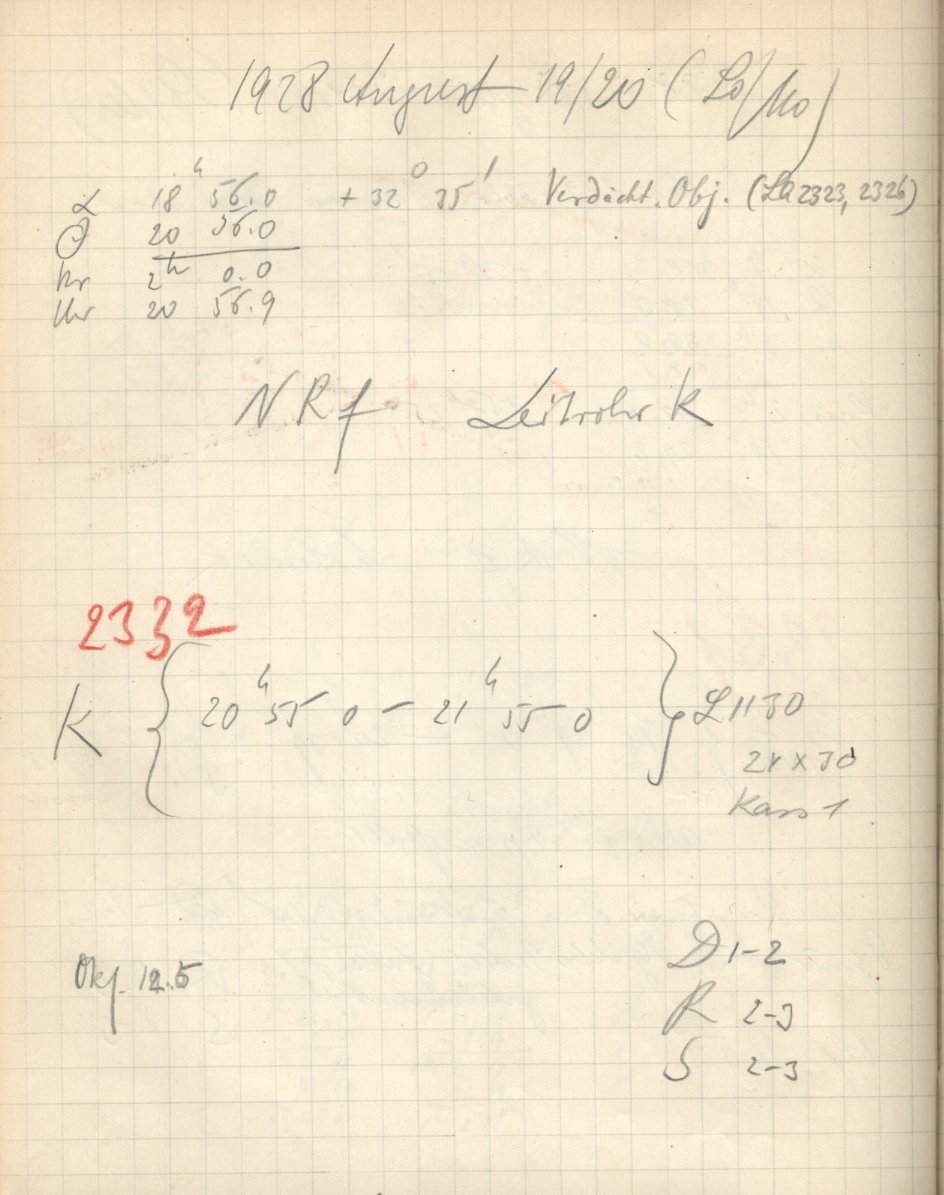 1928 August 19/20 (Lo/Ko)
α 18ʰ 56.0 + 32° 35' Verdächt. Obj. (La 2323, 2326)
20 56.0
hr 2ʰ 0.0
Uhr 20 56.9
NRf Leitrohr K
2332
K { 20ʰ 55 0 – 21ʰ 55 0 } L 1130
24 x 30
Kass 1
D 1-2
Obj. 12.5
R 2-3
S 2-3